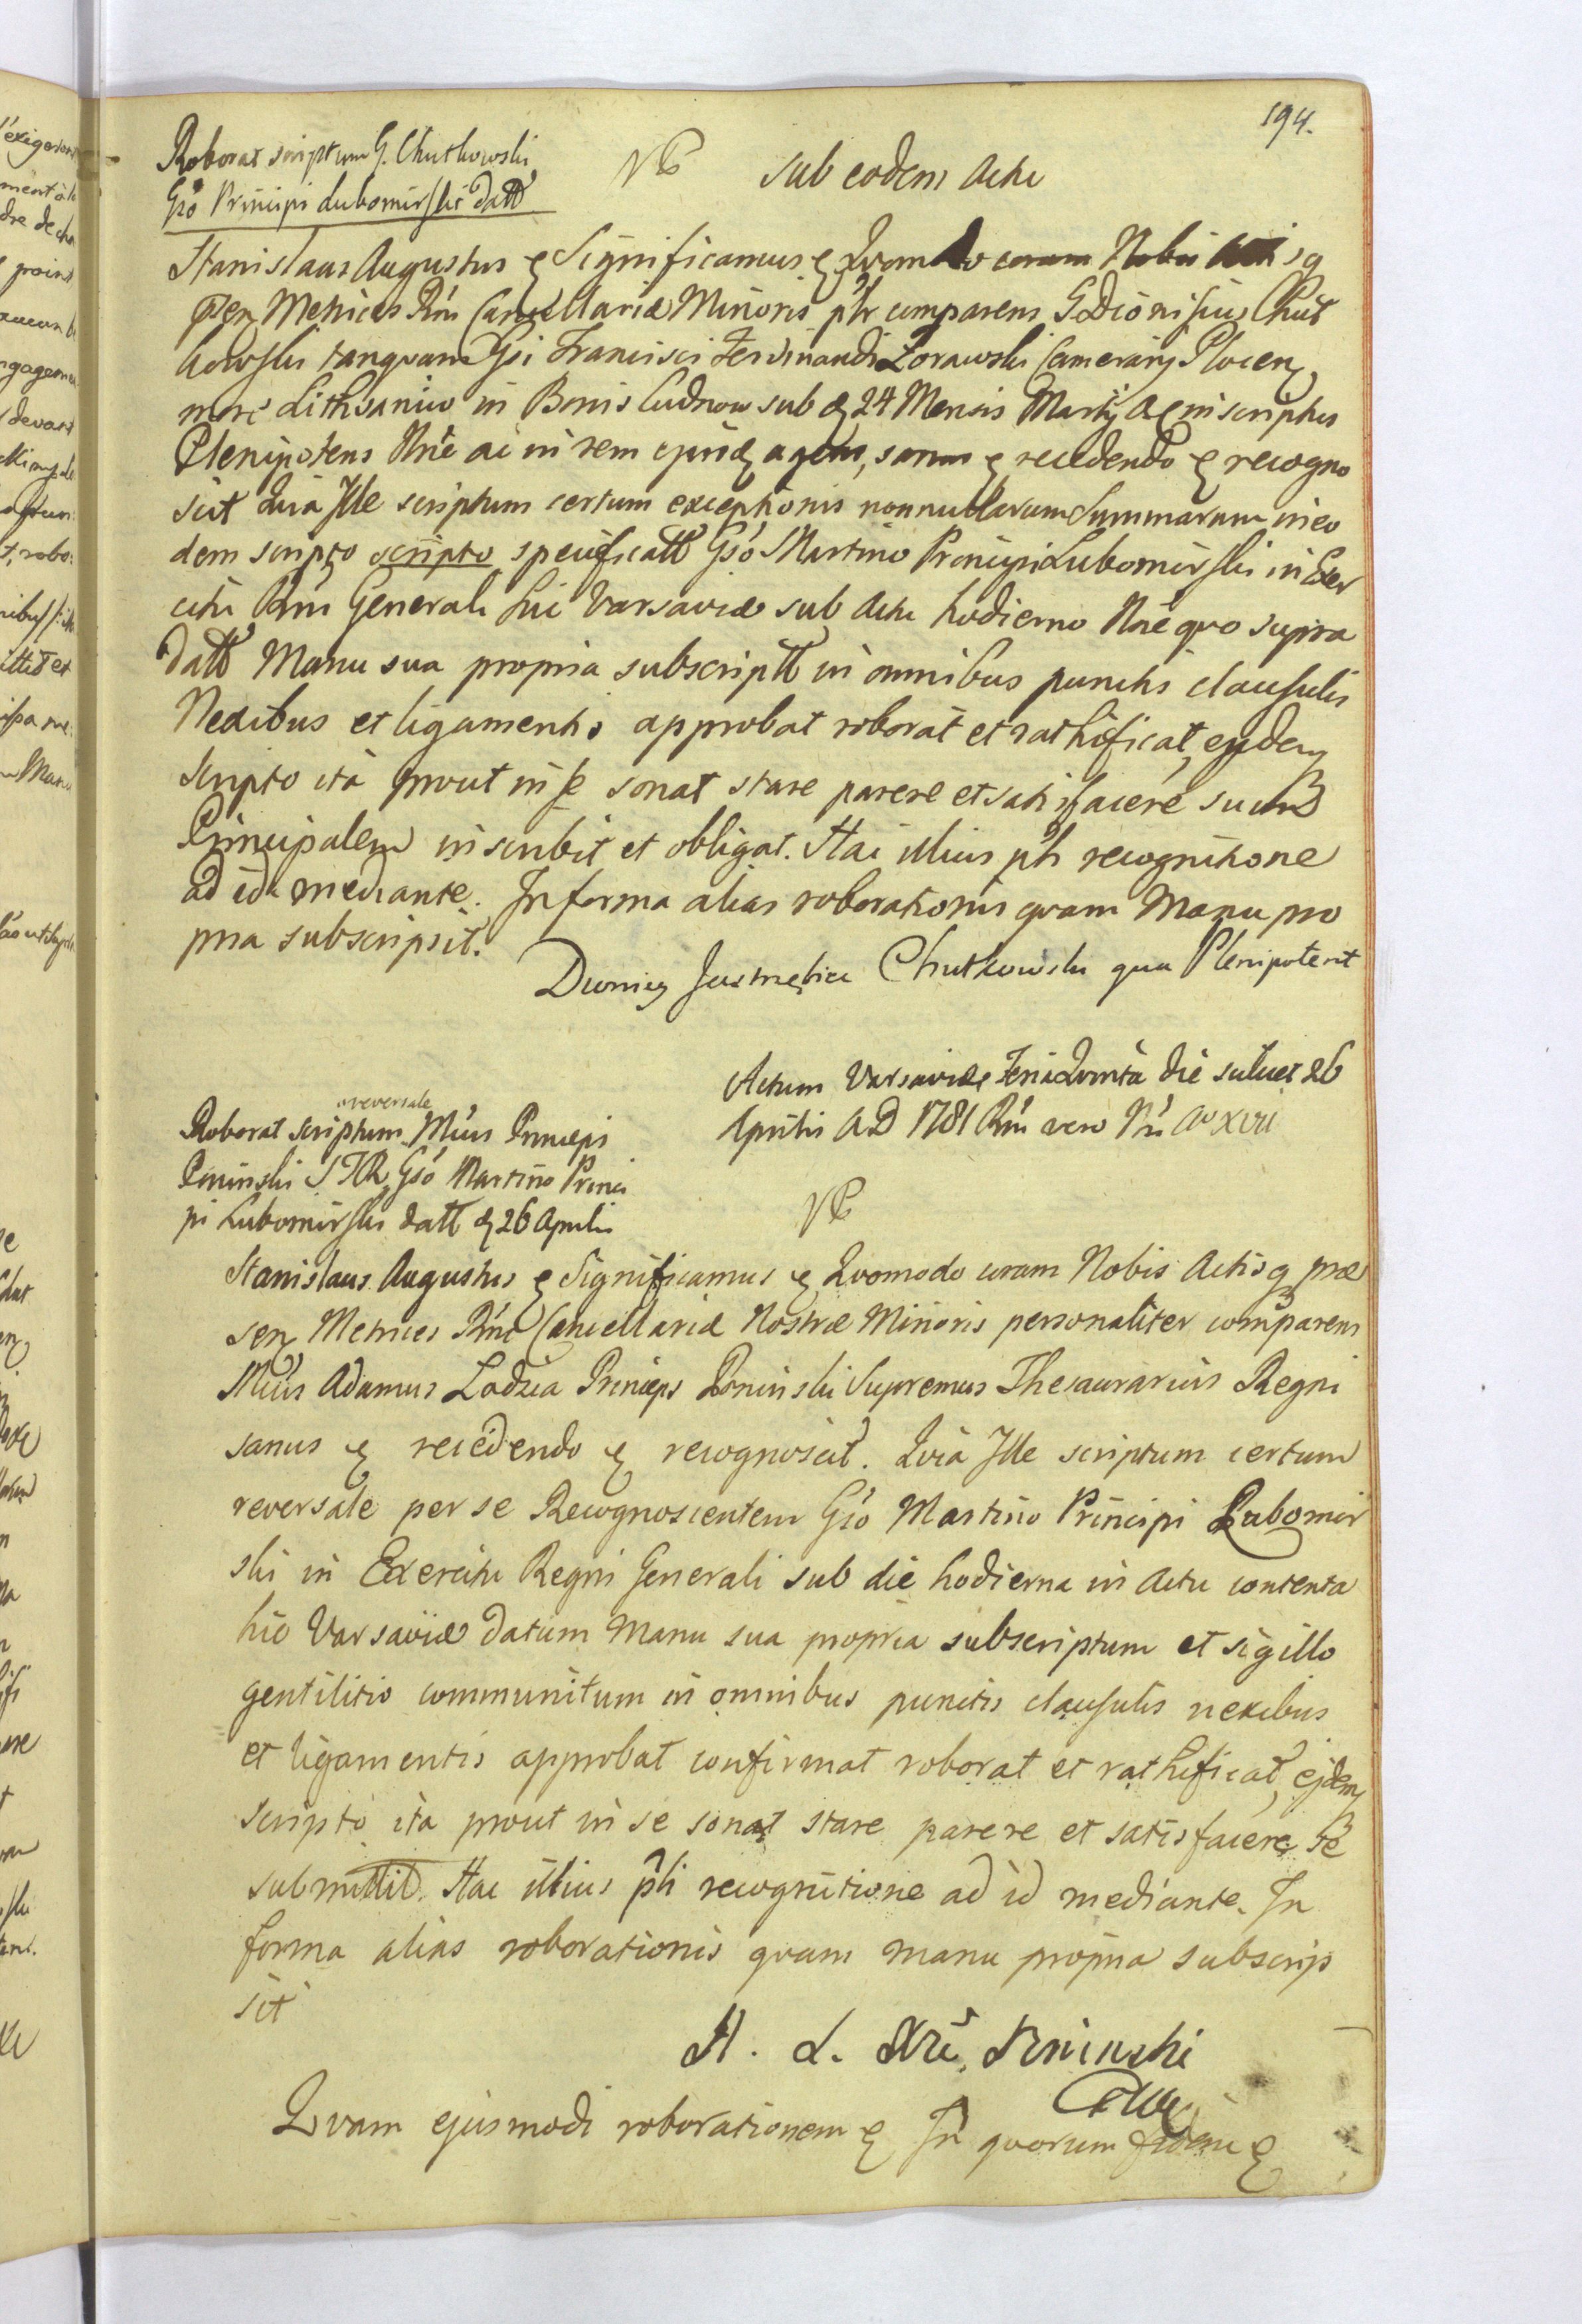 194.
Roborat scriptum G. Chutkowski
Gső Principi Lubomirski datt
VC
sub eodem Actu
Stanislaus Augustus & Significamus & Qvomodo coram Nobis Actisq
Metrices Rni Cancellariæ Minoris plr comparens G. Dionisius Chut
kowski tanqvam Gsi Francisci Ferdinandi Zorawski Camerarij Plocen
more Lithvanico in Bonis Cudnow sub d 24 Mensis Martij A& inscriptus
Plenipotens Nne ac in rem ejusd agens, sanus & recedendo & recogno
scit Qvia Ille scriptum certum exceptionis nonnullarum Summarum in eo
dem scripto scripto specificatt Gső Martino Principi Lubomirski in Exer
citu Rni Generali hic Varsaviæ sub Actu hodierno Nne qvo supra
datt Manu sua propria subscriptt in omnibus punctis clausulis
Nexibus et ligamentis approbat roborat et rathificat, ejdem
scripto ita prout in se sonat stare parere et satisfacere suum
Principalem inscribit et obligat. Hac illius plr recognitione
ad id mediante. In forma alias roborationis qvam Manu pro
pria subscripsit.
Chutkowski qua Plenipotent
Actum Varsaviæ Feria Qvinta die scilicet 26
Aprilis A D 1781 Rni vero Nri Ao XVII
Roborat scriptum reversale Mius Princeps
Poninski STR Gső Martino Princi
pi Lubomirski datt d 26 Aprilis
VC
Stanislaus Augustus & Significamus & Qvomodo coram Nobis Actisq præ
sen Metrices Rni Cancellariæ Nostræ Minoris personaliter comparens
Mius Adamus Lodzia Princeps Poninski Supremus Thesaurarius Regni
sanus & recedendo & recognoscit. Qvia Ille scriptum certum
reversale per se Recognoscentem Gső Martino Principi Lubomir
ski in Exercitu Regni Generali sub die hodierna in Actu contenta
hic Varsaviæ datum Manu sua propria subscriptum et sigillo
gentilitio communitum in omnibus punctis clausulis nexibus
et ligamentis approbat confirmat roborat et rathificat, ejdem
scripto ita prout in se sonat stare parere et satisfacere se
submittit. Hac illius pli recognitione ad id mediante. In
forma alias roborationis qvam manu propria subscrip
sit
A. L. Poninski
Qvam ejusmodi roborationem & In qvorum fidem &